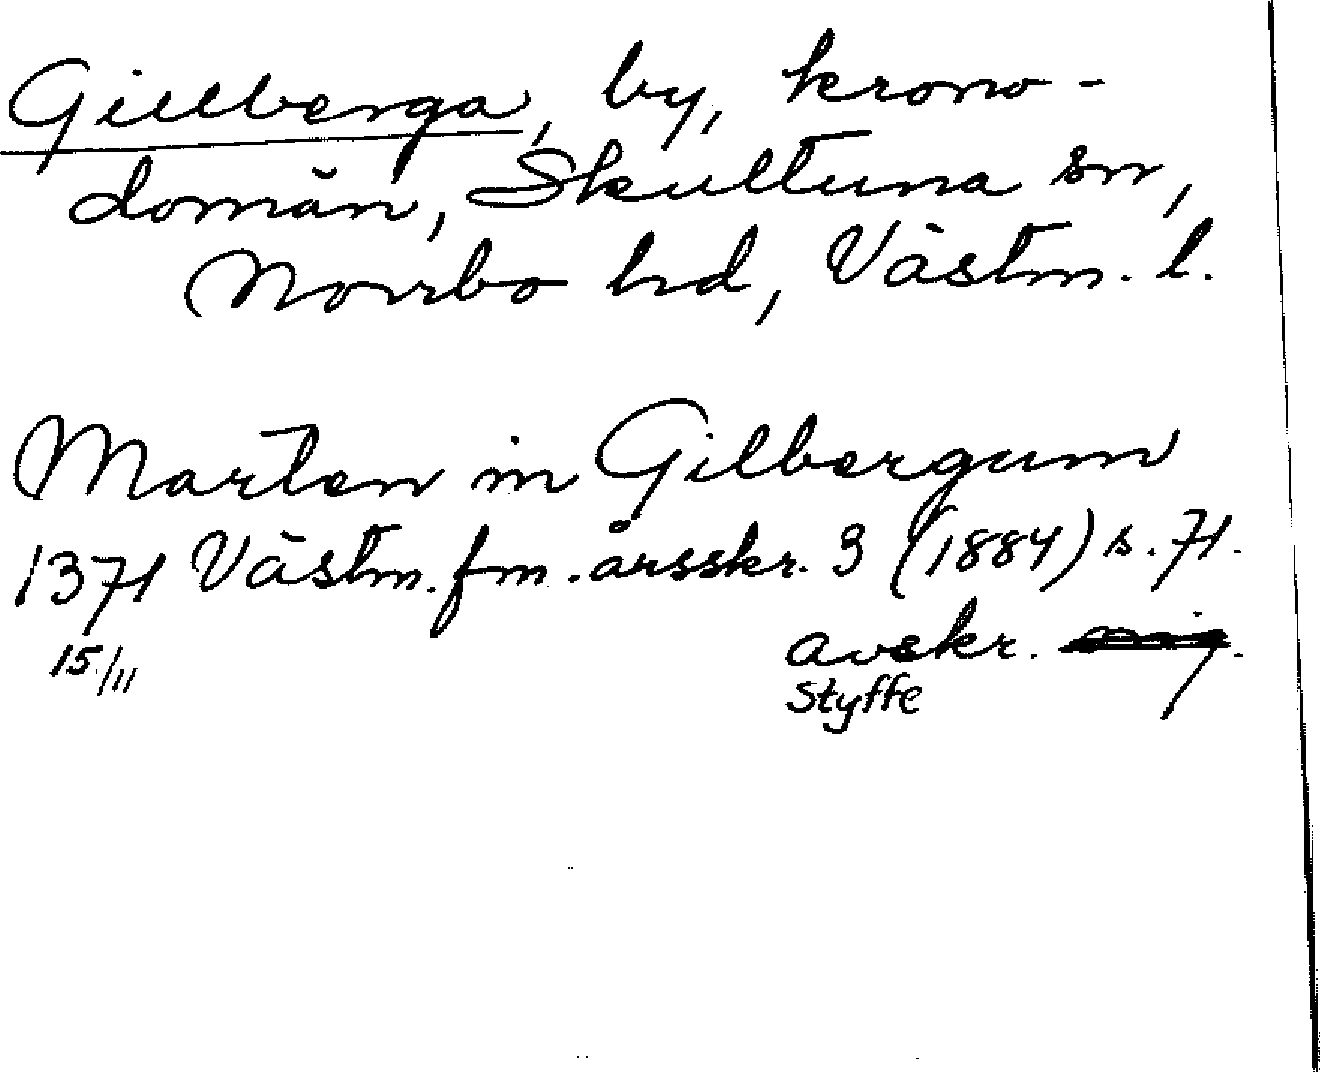 Gillberga, by, krono-
domän, Skultuna sn,
Norrbo hd, Västm. l.
Marten in Gilbergum
1371 Västm. fm. årsskr. 3 (1884) s. 71.
15/11 avskr.
Styffe